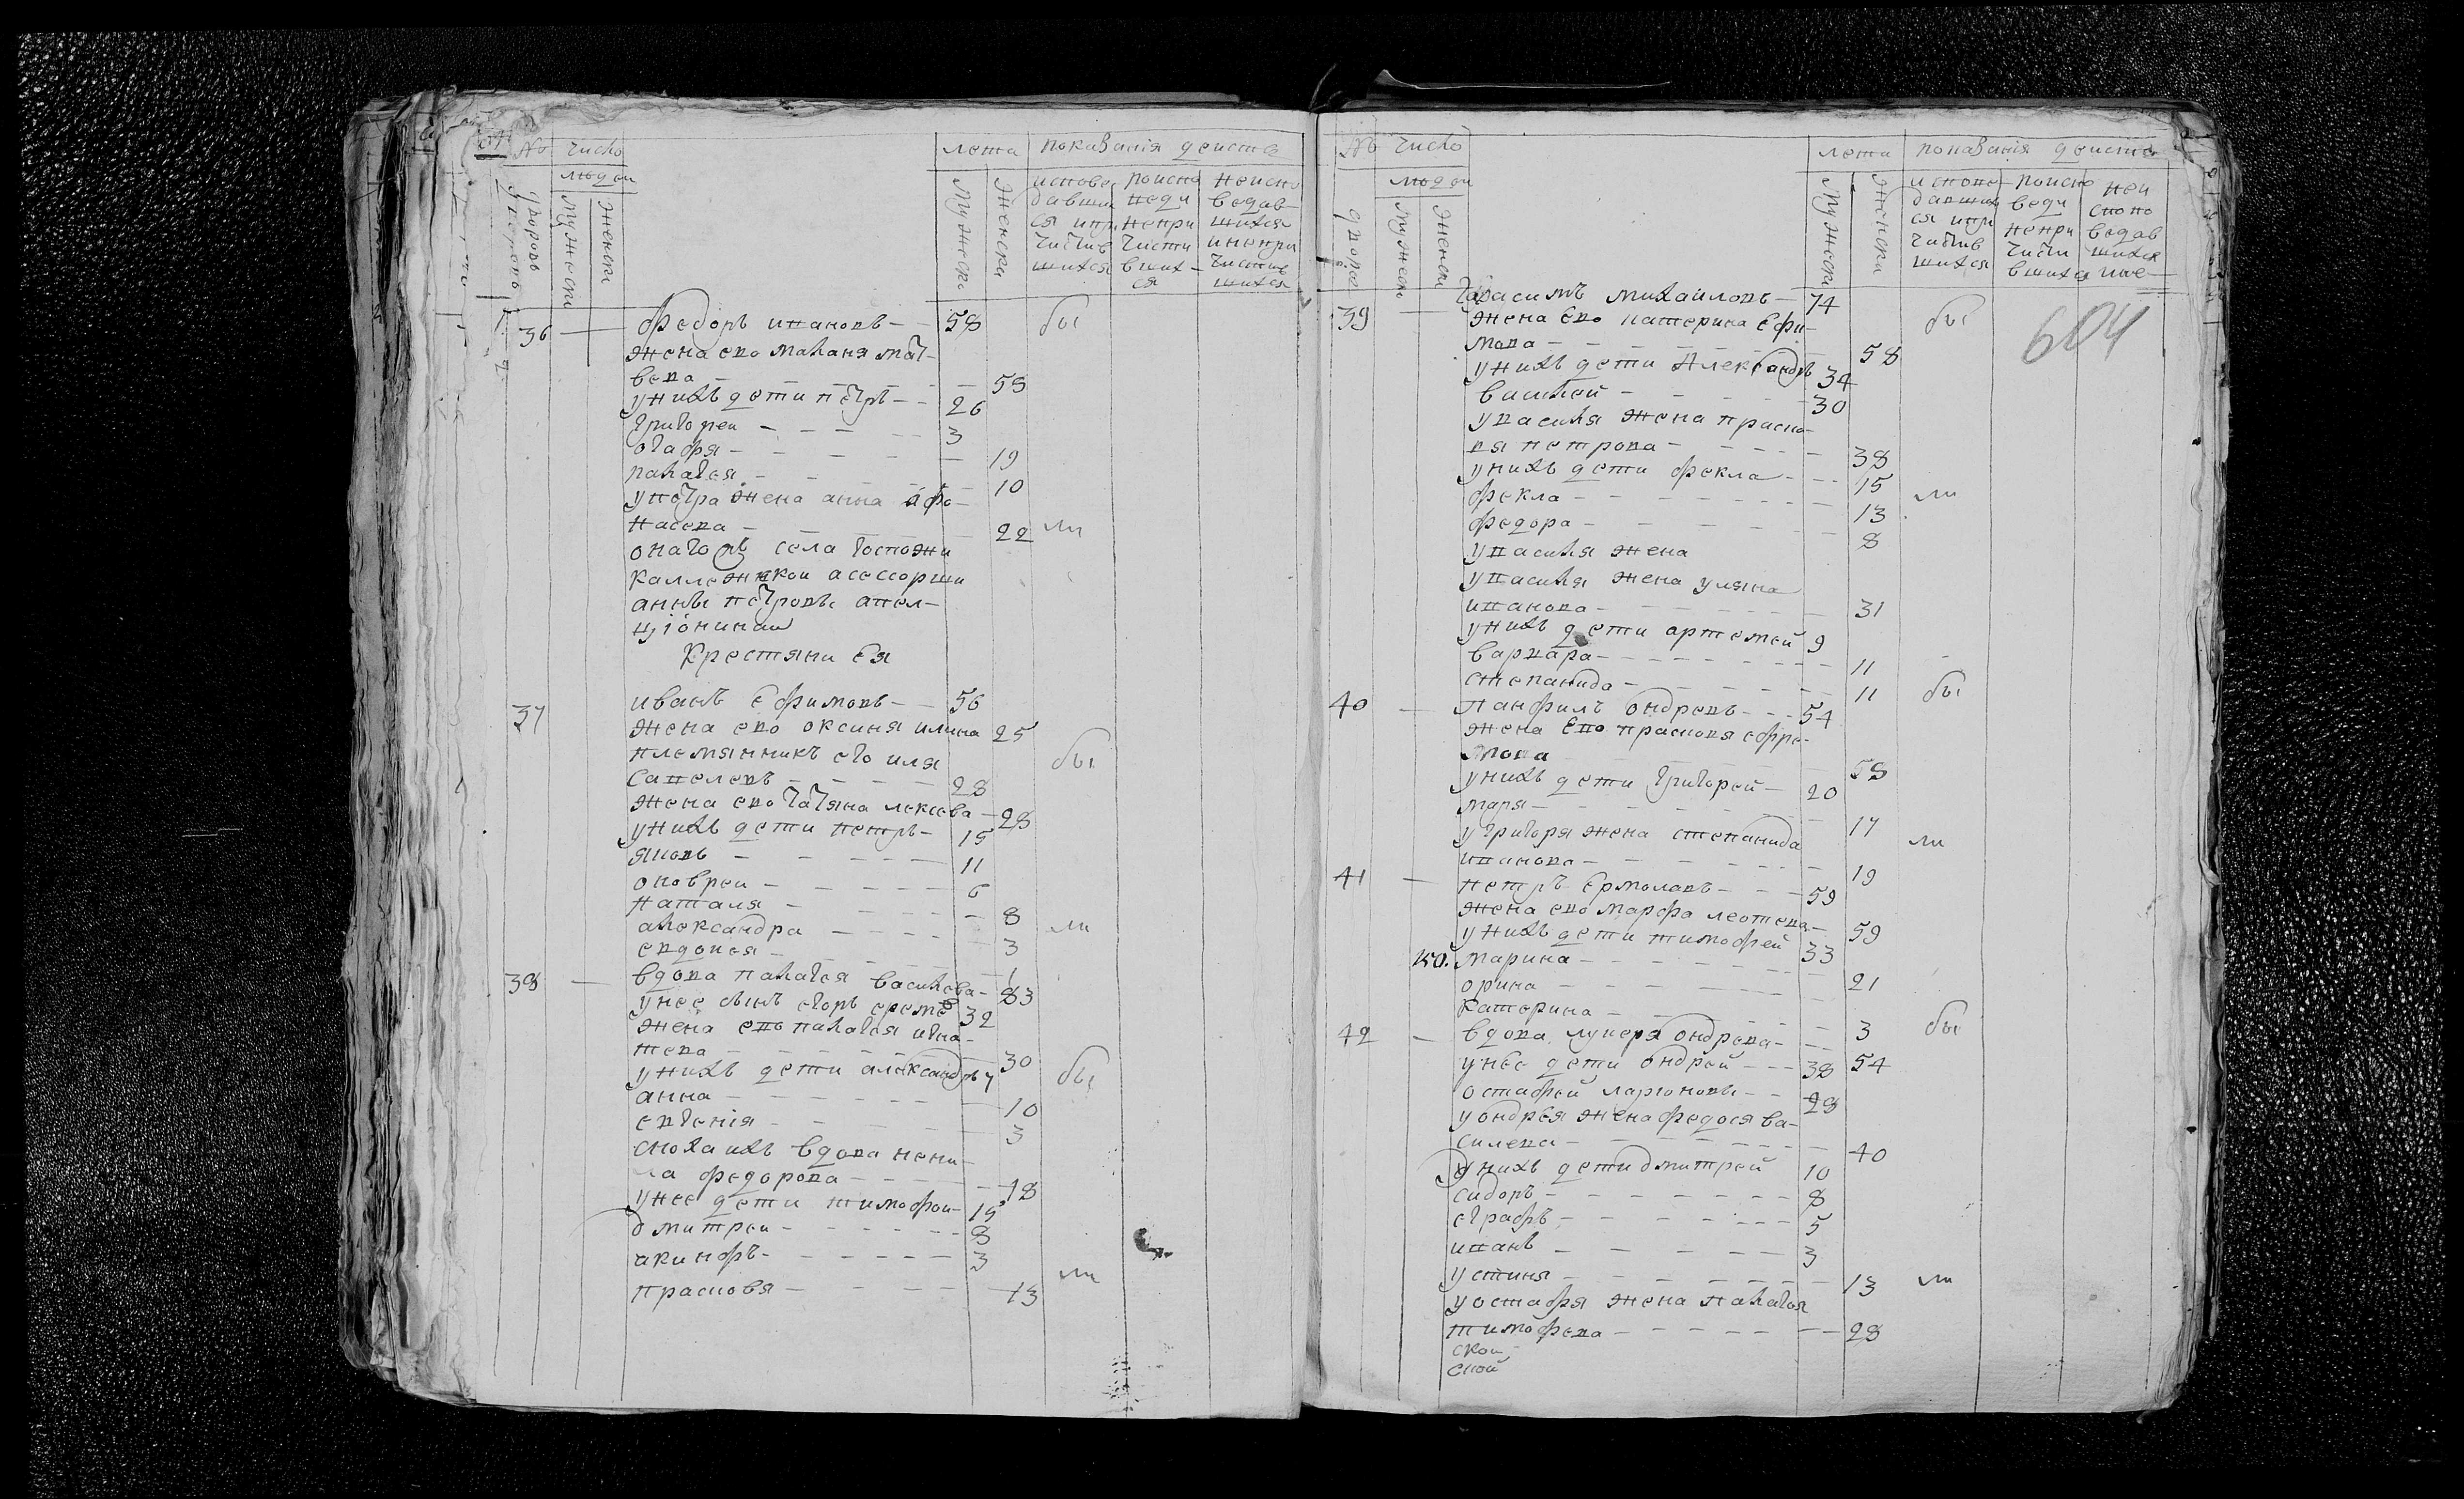 № число лета показания действ
людеи
дворовъ
мужески
женски
мужески
женски
исповедавшихся и причастившихся
по исповеди не причастившихся
не исповедавшихся и не причастившихся
36 Федоръ ивановъ 58 бы
жена ево маланя мат-
вева 59
унихъ дети петръ 26
григореи 3
огафя 19
палагея 10
упетра жена анна афо-
насева 22 ли
каллежкои асессорши
анны петровы
Крестяни Ея
37 иванъ Ефимовъ 56
жена ево оксиня илина 25
племянникъ его иля бы
савелевъ 28
жена ево татяна лексева 28
унихъ дети петръ 15
яковъ 11
6
наталя 8
александра 3 ли
евдокея 1
38 вдова палагея василева 83
унее сынъ егоръ ереме 32
жена ево палагея игна-
тева 30
унихъ дети александръ 7 бы
анна 10
евгенія 3
сноха ихъ вдова нени-
ла федорова 48
унее дети тимофеи 15
дмитреи 8
акинфъ 3
ли
прасковя 13
№ число лета показания действ
людеи
дворов
мужески
женски
мужески
женски
исповедавшихся и причастившихся
по исповеди не причастившихся
неисповедавшихся
604
39 Гарасимъ михаиловъ 74
жена Ево катерина Ефи- бы
мова 58
унихъ дети Александръ 34
василей 30
увасиля жена праско-
вя петрова 38
унихъ дети фекла 15
фекла 13 ли
федора 8
увасиля жена
увасиля жена уляна
иванова 31
унихъ дети артемей 9
варвара 11
степанида 11 бы
40 панфилъ ондревъ 54
жена Ево прасковя ефре-
мова 58
унихъ дети григорей 20
маря 17
угригоря жена степанида ли
иванова 19
41 петръ Ермолавъ 59
жена ево марфа леотева 59
унихъ дети тимофей 33
150. марина 21
орина
катерина 3
42 вдова лукеря ондрева 54 бы
унее дети ондрей 38
остафей ларионовъ 28
уондрея жена федося ва-
силева 40
унихъ дети дмитрей 10
сидоръ 8
еграфъ 5
иванъ 3
устиня 13 ли
уостафя жена палагея
тимофева 28
скои
скои